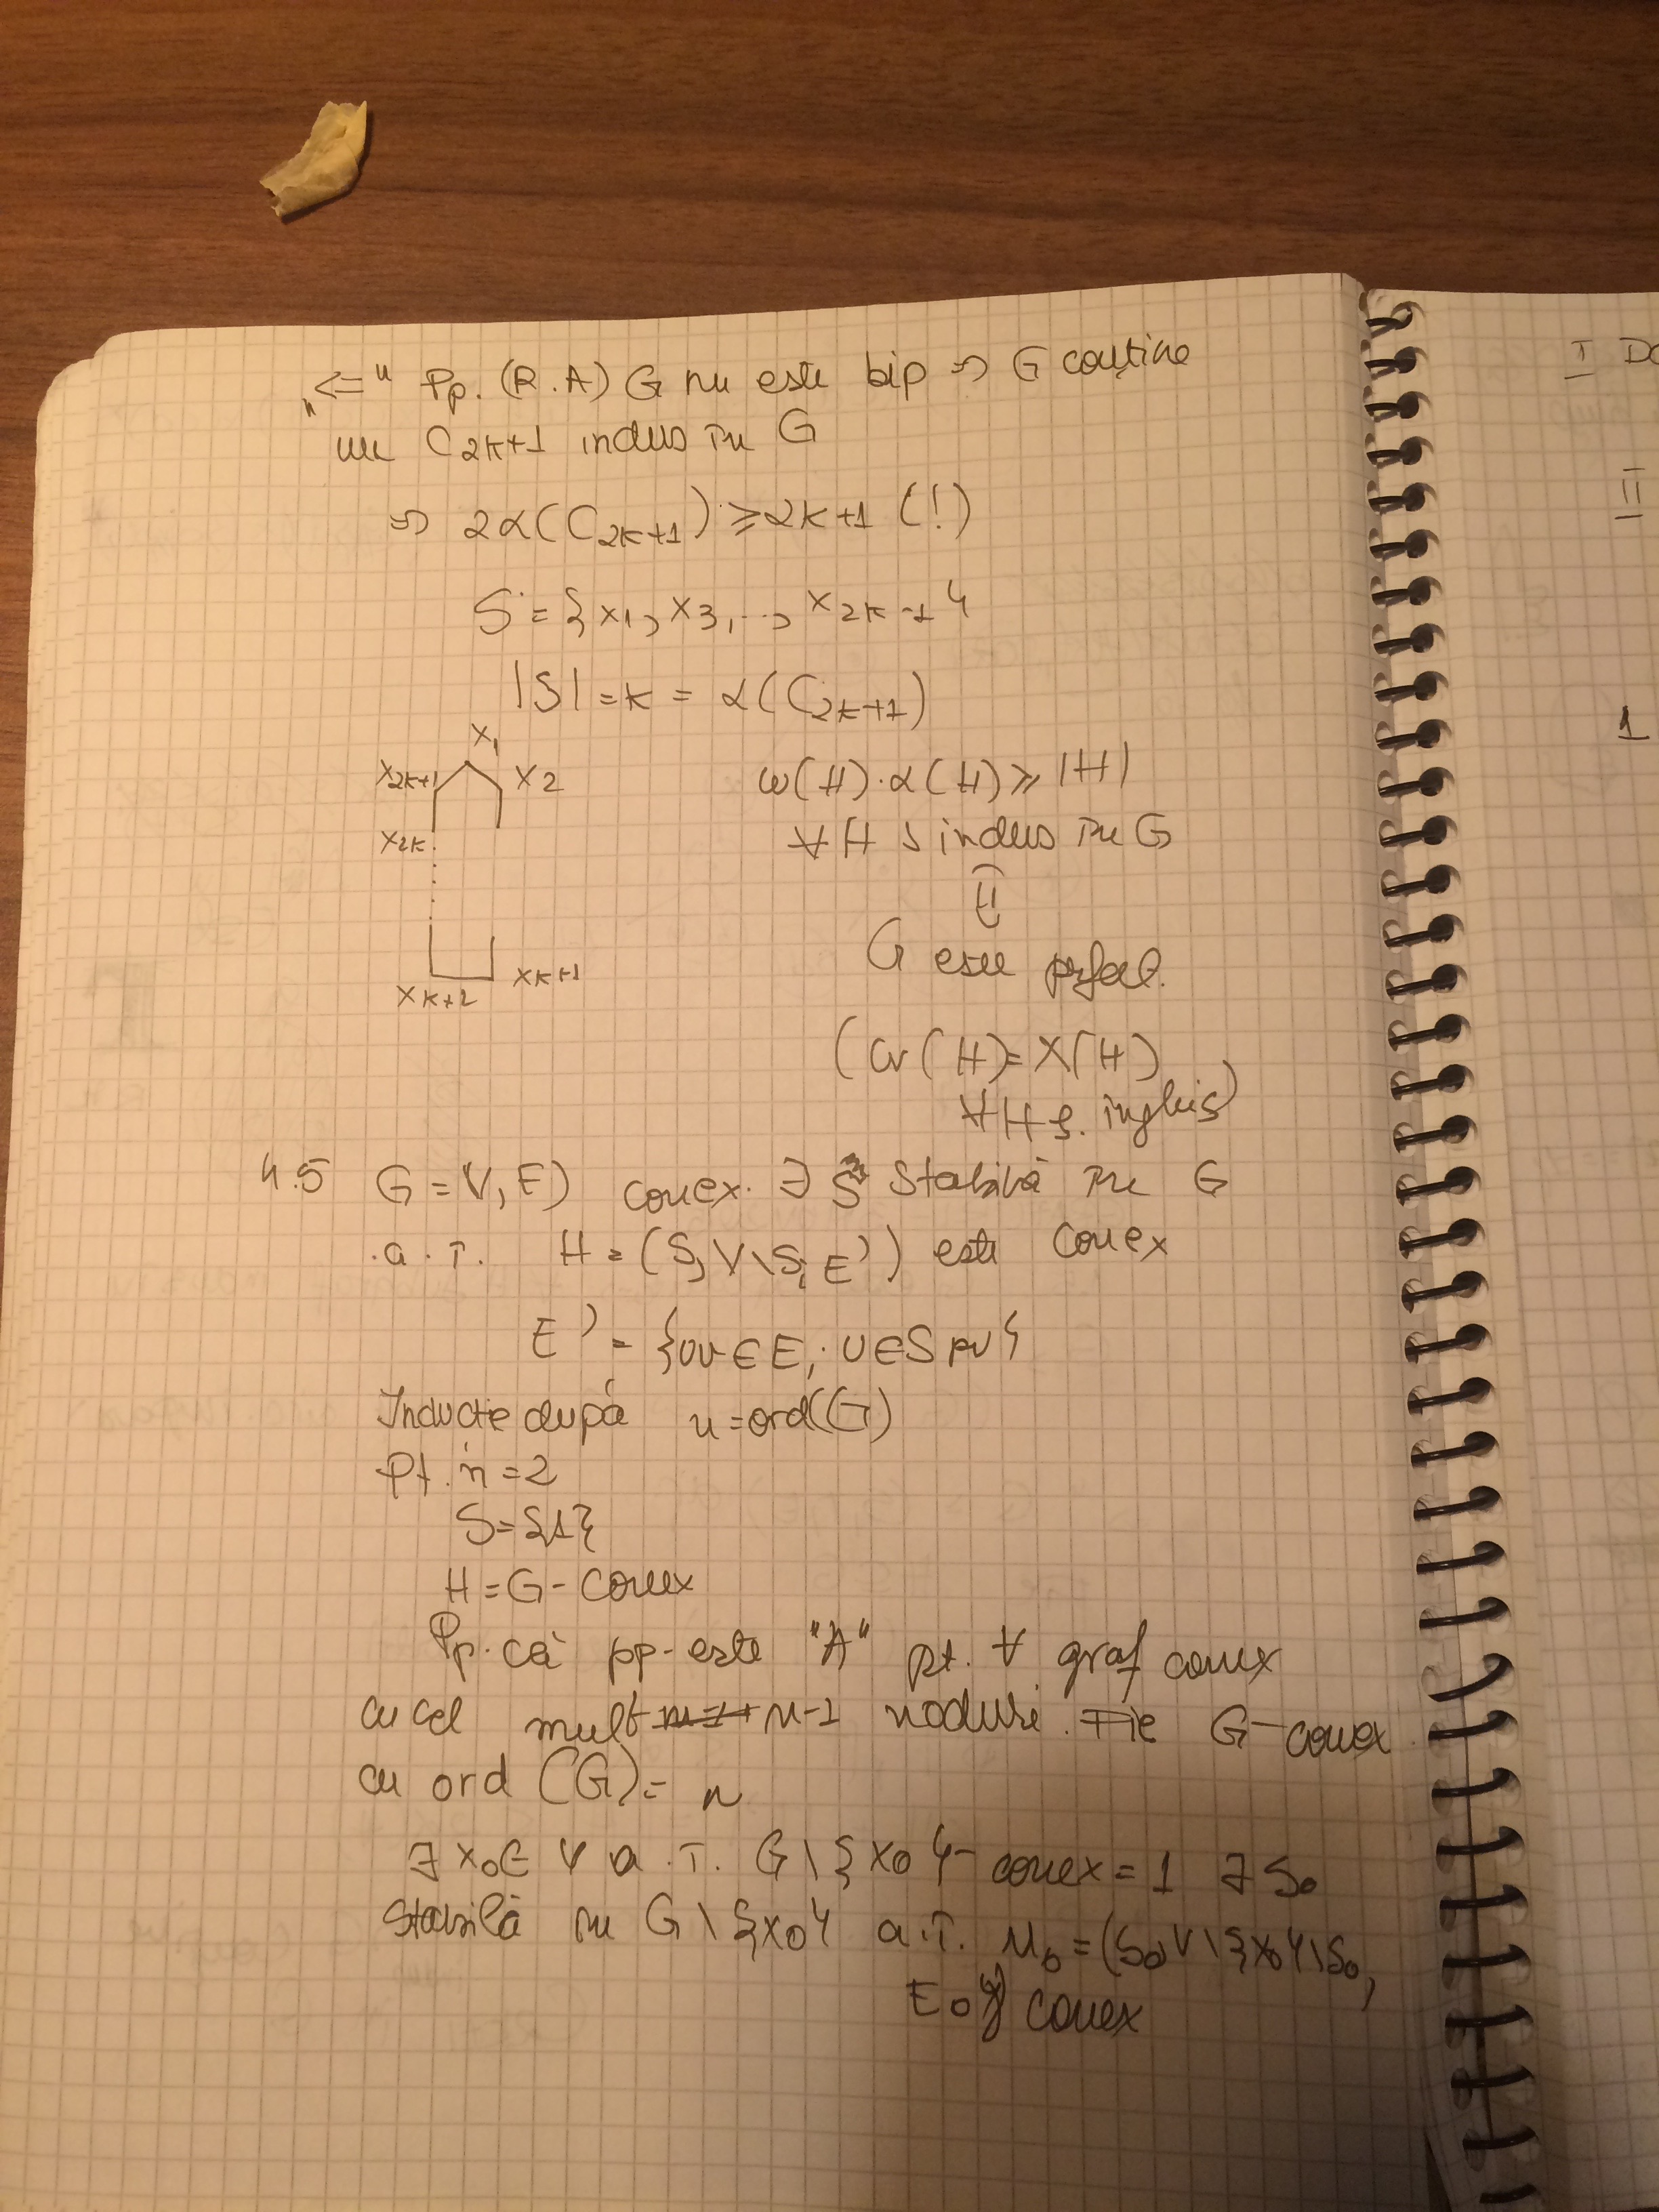 „<=" Pp. (R.A) G nu este bip => G conține
un C2k+1 indus în G
=> 2α(C2k+1) ≥ 2k+1 (!)
S = {x1, x3, ..., x2k-1}
|S| = k = α(C2k+1)
x1
x2k+1 x2
x2k
xk+1
xk+2
ω(H)·α(H) ≥ |H|
∀ H s indus în G
G este perfect.
(ω(H) = χ(H)
∀ H s.
4.5 G = V, E) conex. ∃ S stabilă în G
a.î. H = (S, V\S; E') este conex
E' = {uv ∈ E; u ∈ S
Inducție după n = ord(G)
Pt. n = 2
S = {1}
H = G - conex
Pp. că pp. este "A" pt. ∀ graf conex
cu cel mult n-1 noduri. Fie G - conex
cu ord (G) = n
∃ x0 ∈ V a.î. G \ {x0} - conex = 1 ∃ S0
stabilă în G \ {x0} a.î. H0 = (S0, V \ {x0} \ S0,
E0') conex
I DO
II
1